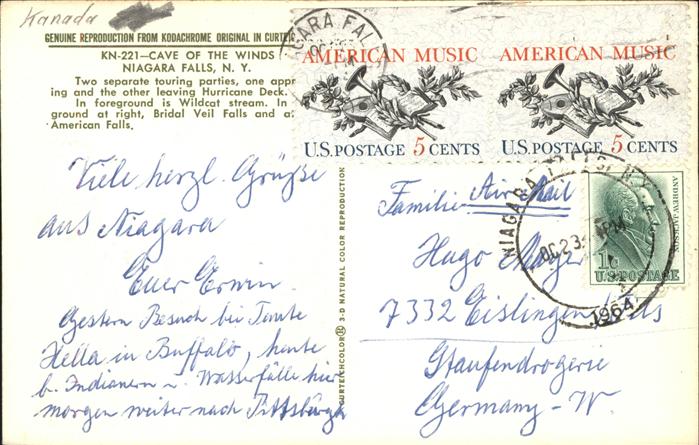 Kanada
GENUINE REPRODUCTION FROM KODACHROME ORIGINAL IN CURTEIC
KN-221—CAVE OF THE WINDS
NIAGARA FALLS, N. Y.
Two separate touring parties, one appr
ing and the other leaving Hurricane Deck.
In foreground is Wildcat stream. In
ground at right, Bridal Veil Falls and at
American Falls.
Viele herzl. Grüße
aus Niagara
Euer Erwin.
Gestern Besuch bei Tante
Hella in Buffalo, heute
b. Indianern u. Wasserfälle hier
morgen weiter nach Pittsburgh
CURTEICHCOLOR 3-D NATURAL COLOR REPRODUCTION
AGARA FAL
AMERICAN MUSIC
U.S. POSTAGE 5 CENTS
AMERICAN MUSIC
U.S. POSTAGE 5 CENTS
ANDREW JACKSON
1c
U.S. POSTAGE
NIAGARA FALLS, N.Y.
OC 23
PM
1964
Air Mail
Familie
Hugo
7332 Eislingen/Fils
Staufendrogerie
Germany-W.